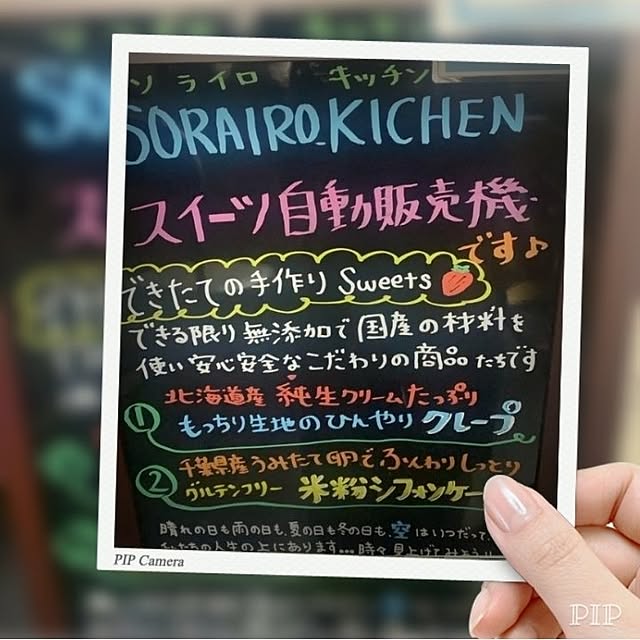 ソライロ キッチン
SORAIRO.KICHEN
スイーツ自動販売機
です♪
できたての手作り Sweets
できる限り無添加で国産の材料を
使い安心安全なこだわりの商品たちです
① 北海道産 純生クリームたっぷり
もっちり生地のひんやりクレープ
② 千葉県産うみたて卵でふんわりしっとり
グルテンフリー 米粉シフォンケー
晴れの日も雨の日も、夏の日も冬の日も、空はいつだって、
人生の上にあります...時々見上げて
PIP Camera
PIP